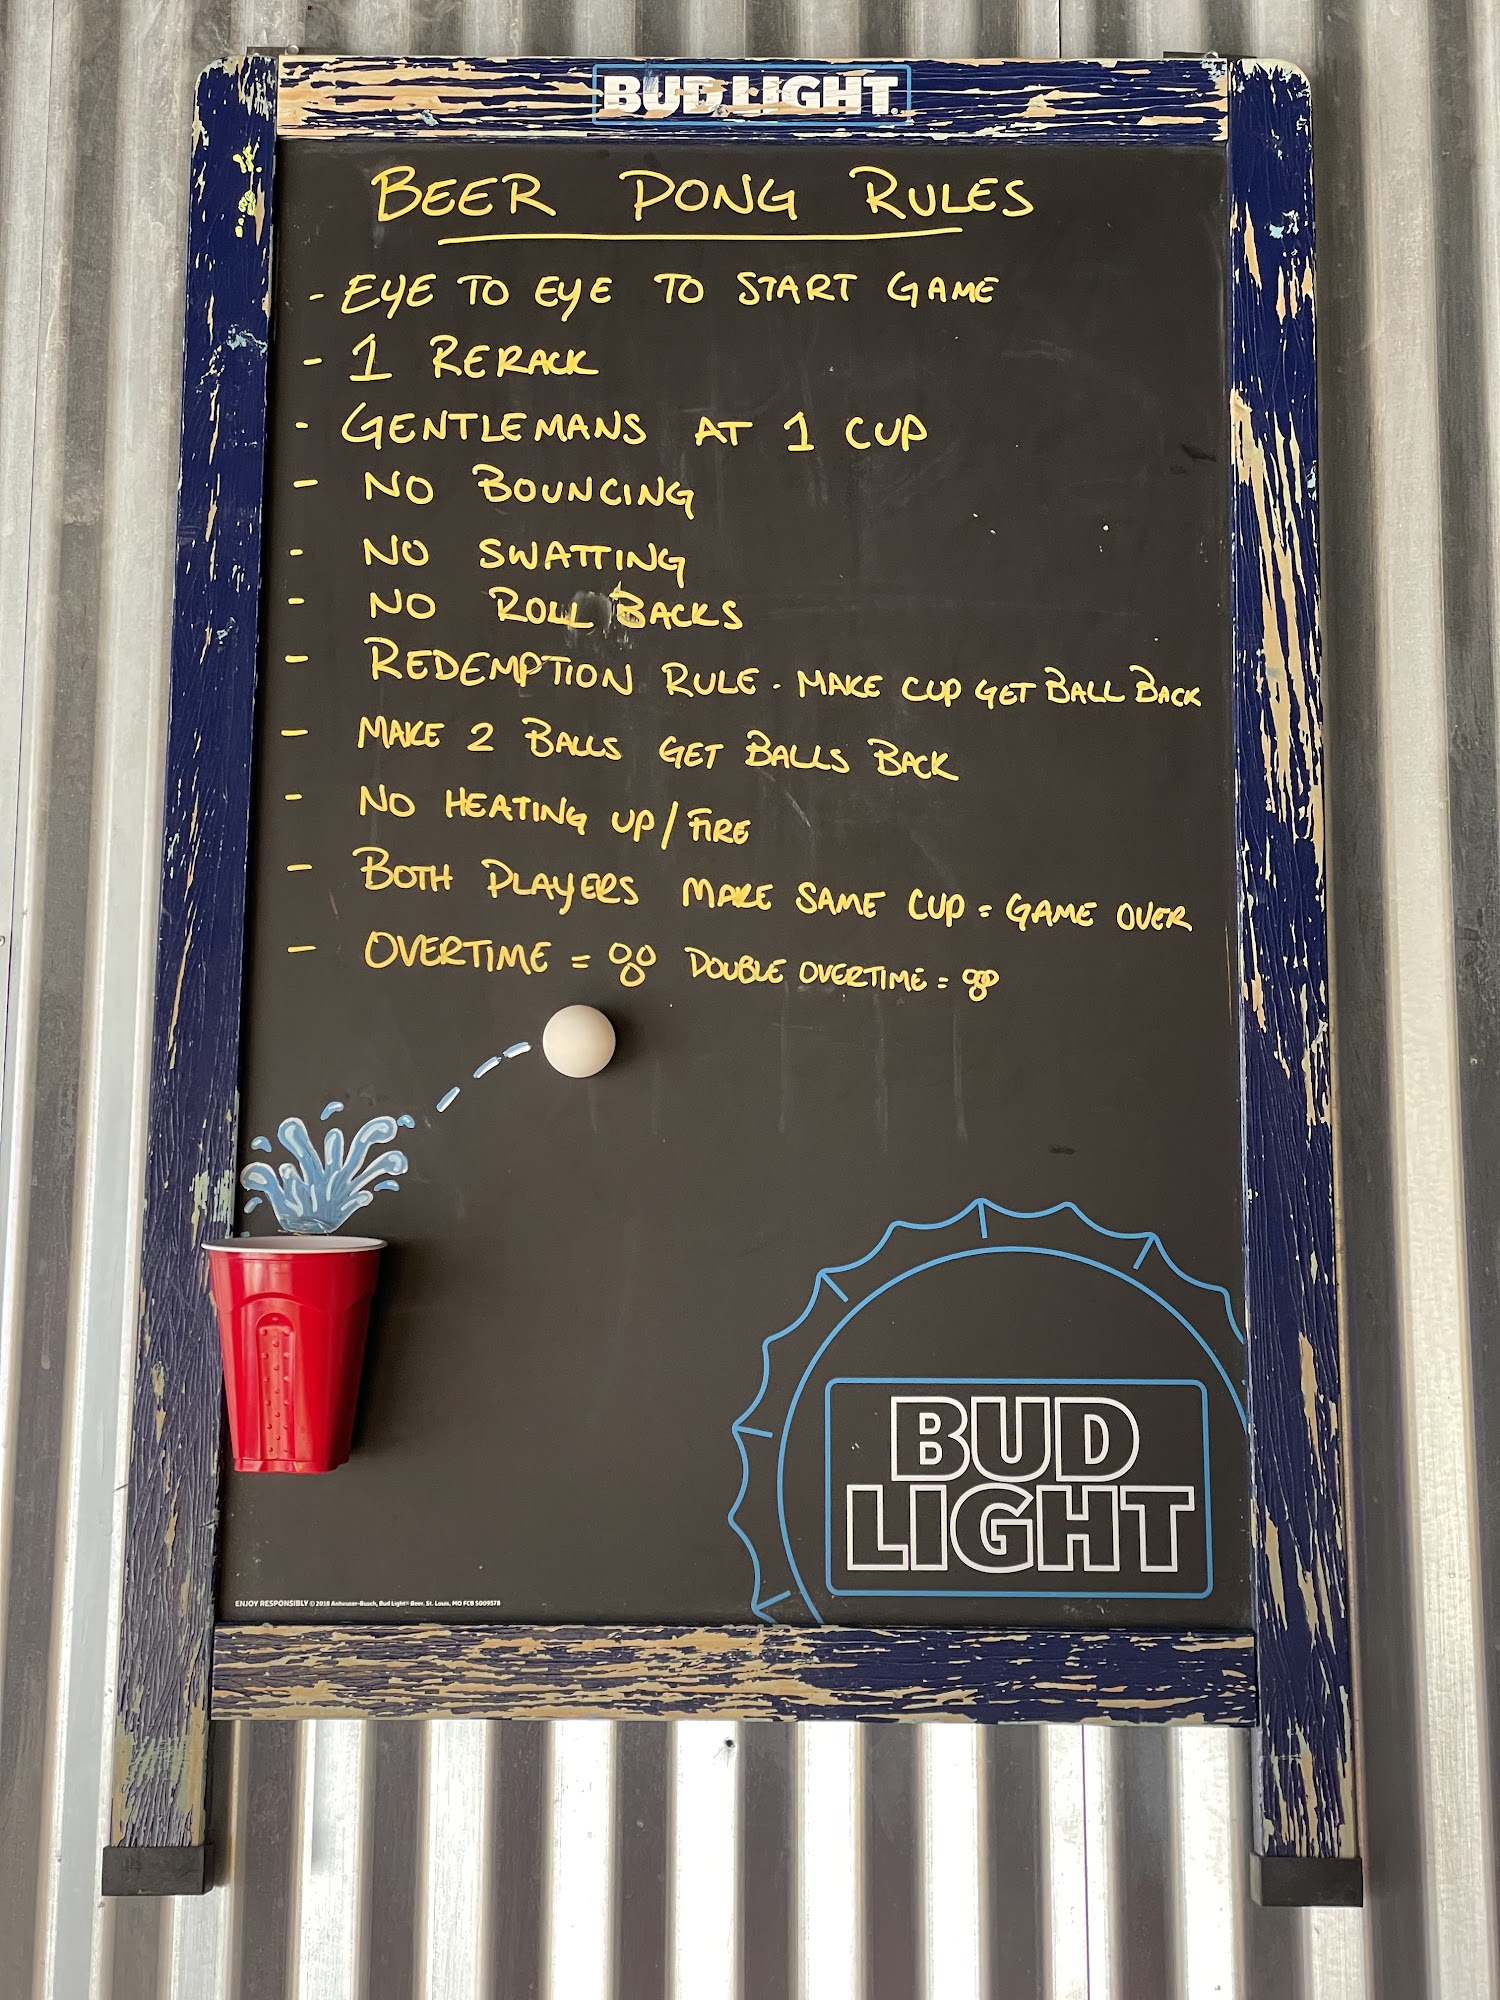 BUD LIGHT.
BEER PONG RULES
- EYE TO EYE TO START GAME
- 1 RERACK
- GENTLEMANS AT 1 CUP
- NO BOUNCING
- NO SWATTING
- NO ROLL BACKS
- REDEMPTION RULE. MAKE CUP GET BALL BACK
- MAKE 2 BALLS GET BALLS BACK
- NO HEATING UP/FIRE
- BOTH PLAYERS MAKE SAME CUP = GAME OVER
- OVERTIME = DOUBLE OVERTIME =
BUD
LIGHT
ENJOY RESPONSIBLY © 2018 Anheuser-Busch, Bud Light® Beer, St. Louis, MO FCB 5009578